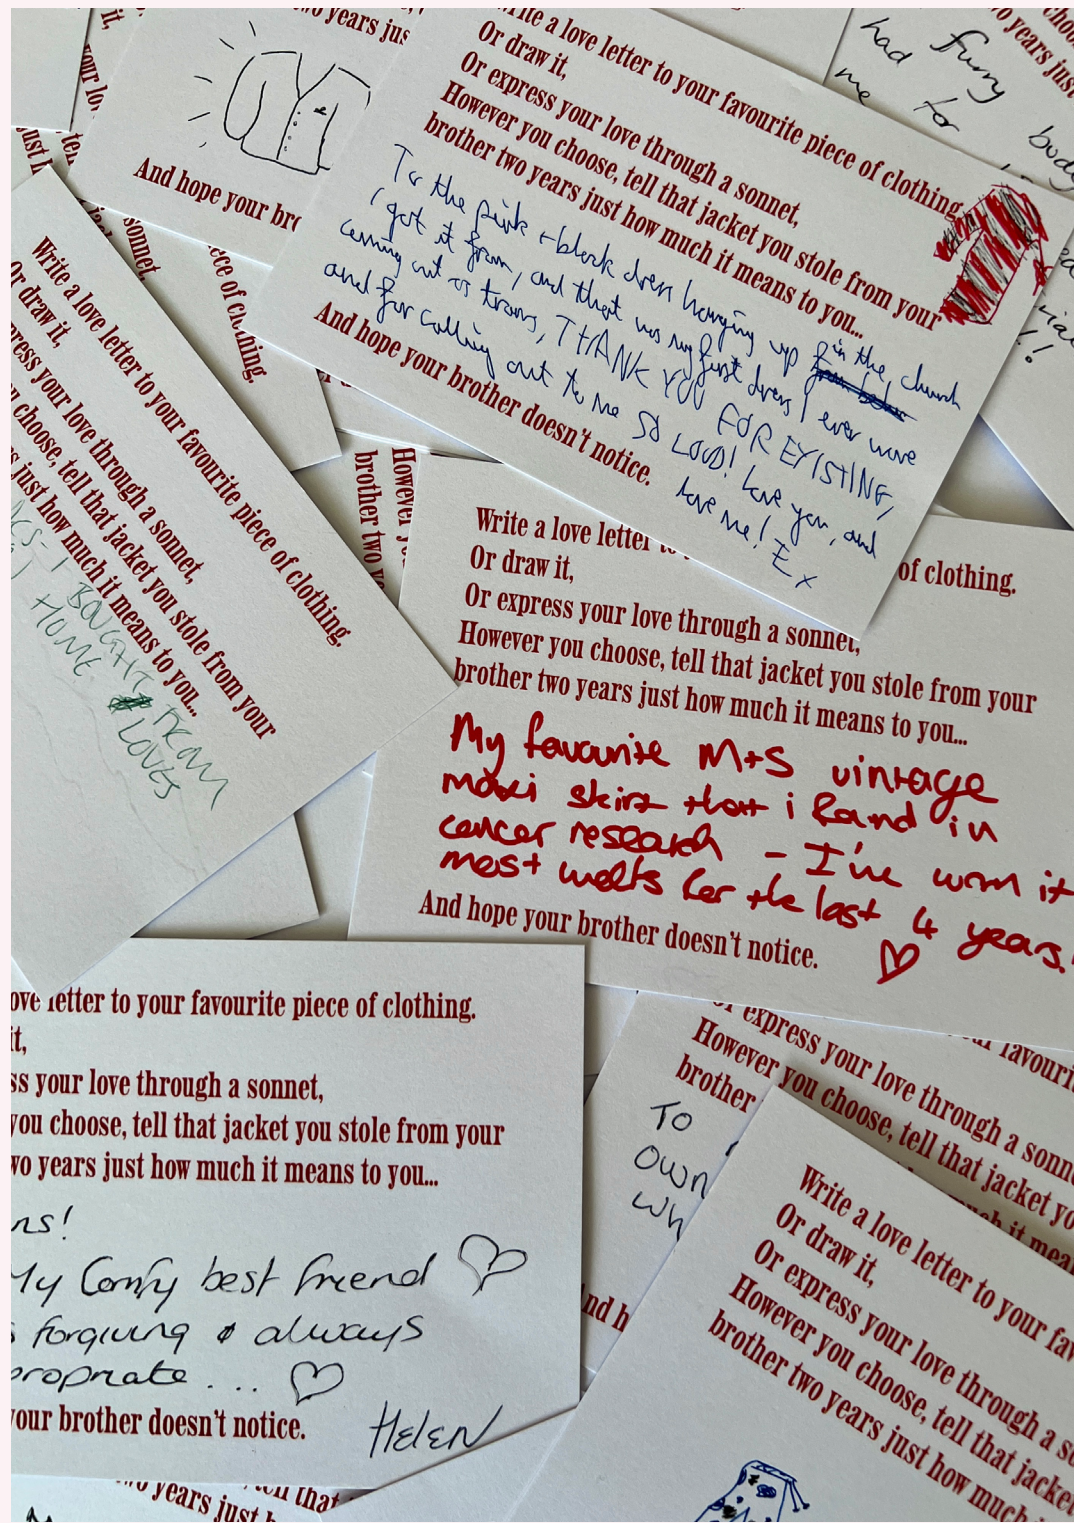 two years jus
And hope your bro
Write a love letter to your favourite piece of clothing.
Or draw it,
Or express your love through a sonnet,
However you choose, tell that jacket you stole from your
brother two years just how much it means to you...
To the pink + black dress hanging up in the church
I got it from, and that was my first dress I ever wore
coming out as trans, THANK YOU FOR EXISTING,
and for calling out to me SO LOUD! Love you, and
love me! Ex
And hope your brother doesn't notice.
furry
had
buddy
me for
!!
sonnet,
ece of clothing.
Write a love letter to your favourite piece of clothing.
Or draw it,
press your love through a sonnet,
u choose, tell that jacket you stole from your
s just how much it means to you...
I BOUGHT FROM
HOME. LOVES
However y
brother two ye
Write a love letter
of clothing.
Or draw it,
Or express your love through a sonnet,
However you choose, tell that jacket you stole from your
brother two years just how much it means to you...
My favourite M+S vintage
maxi skirt that i found in
cancer research - I've worn it
most weeks for the last 4 years.
And hope your brother doesn't notice.
ove letter to your favourite piece of clothing.
it,
ss your love through a sonnet,
you choose, tell that jacket you stole from your
wo years just how much it means to you...
ns!
My Comfy best friend
forgiving & always
propriate...
your brother doesn't notice.
HELEN
or express your love through a sonne
However you choose, tell that jacket yo
brother
TO
OWN
WH
And h
Write a love letter to your fav
Or draw it,
Or express your love through a so
However you choose, tell that jacket
brother two years just how much i
years just h
tell that